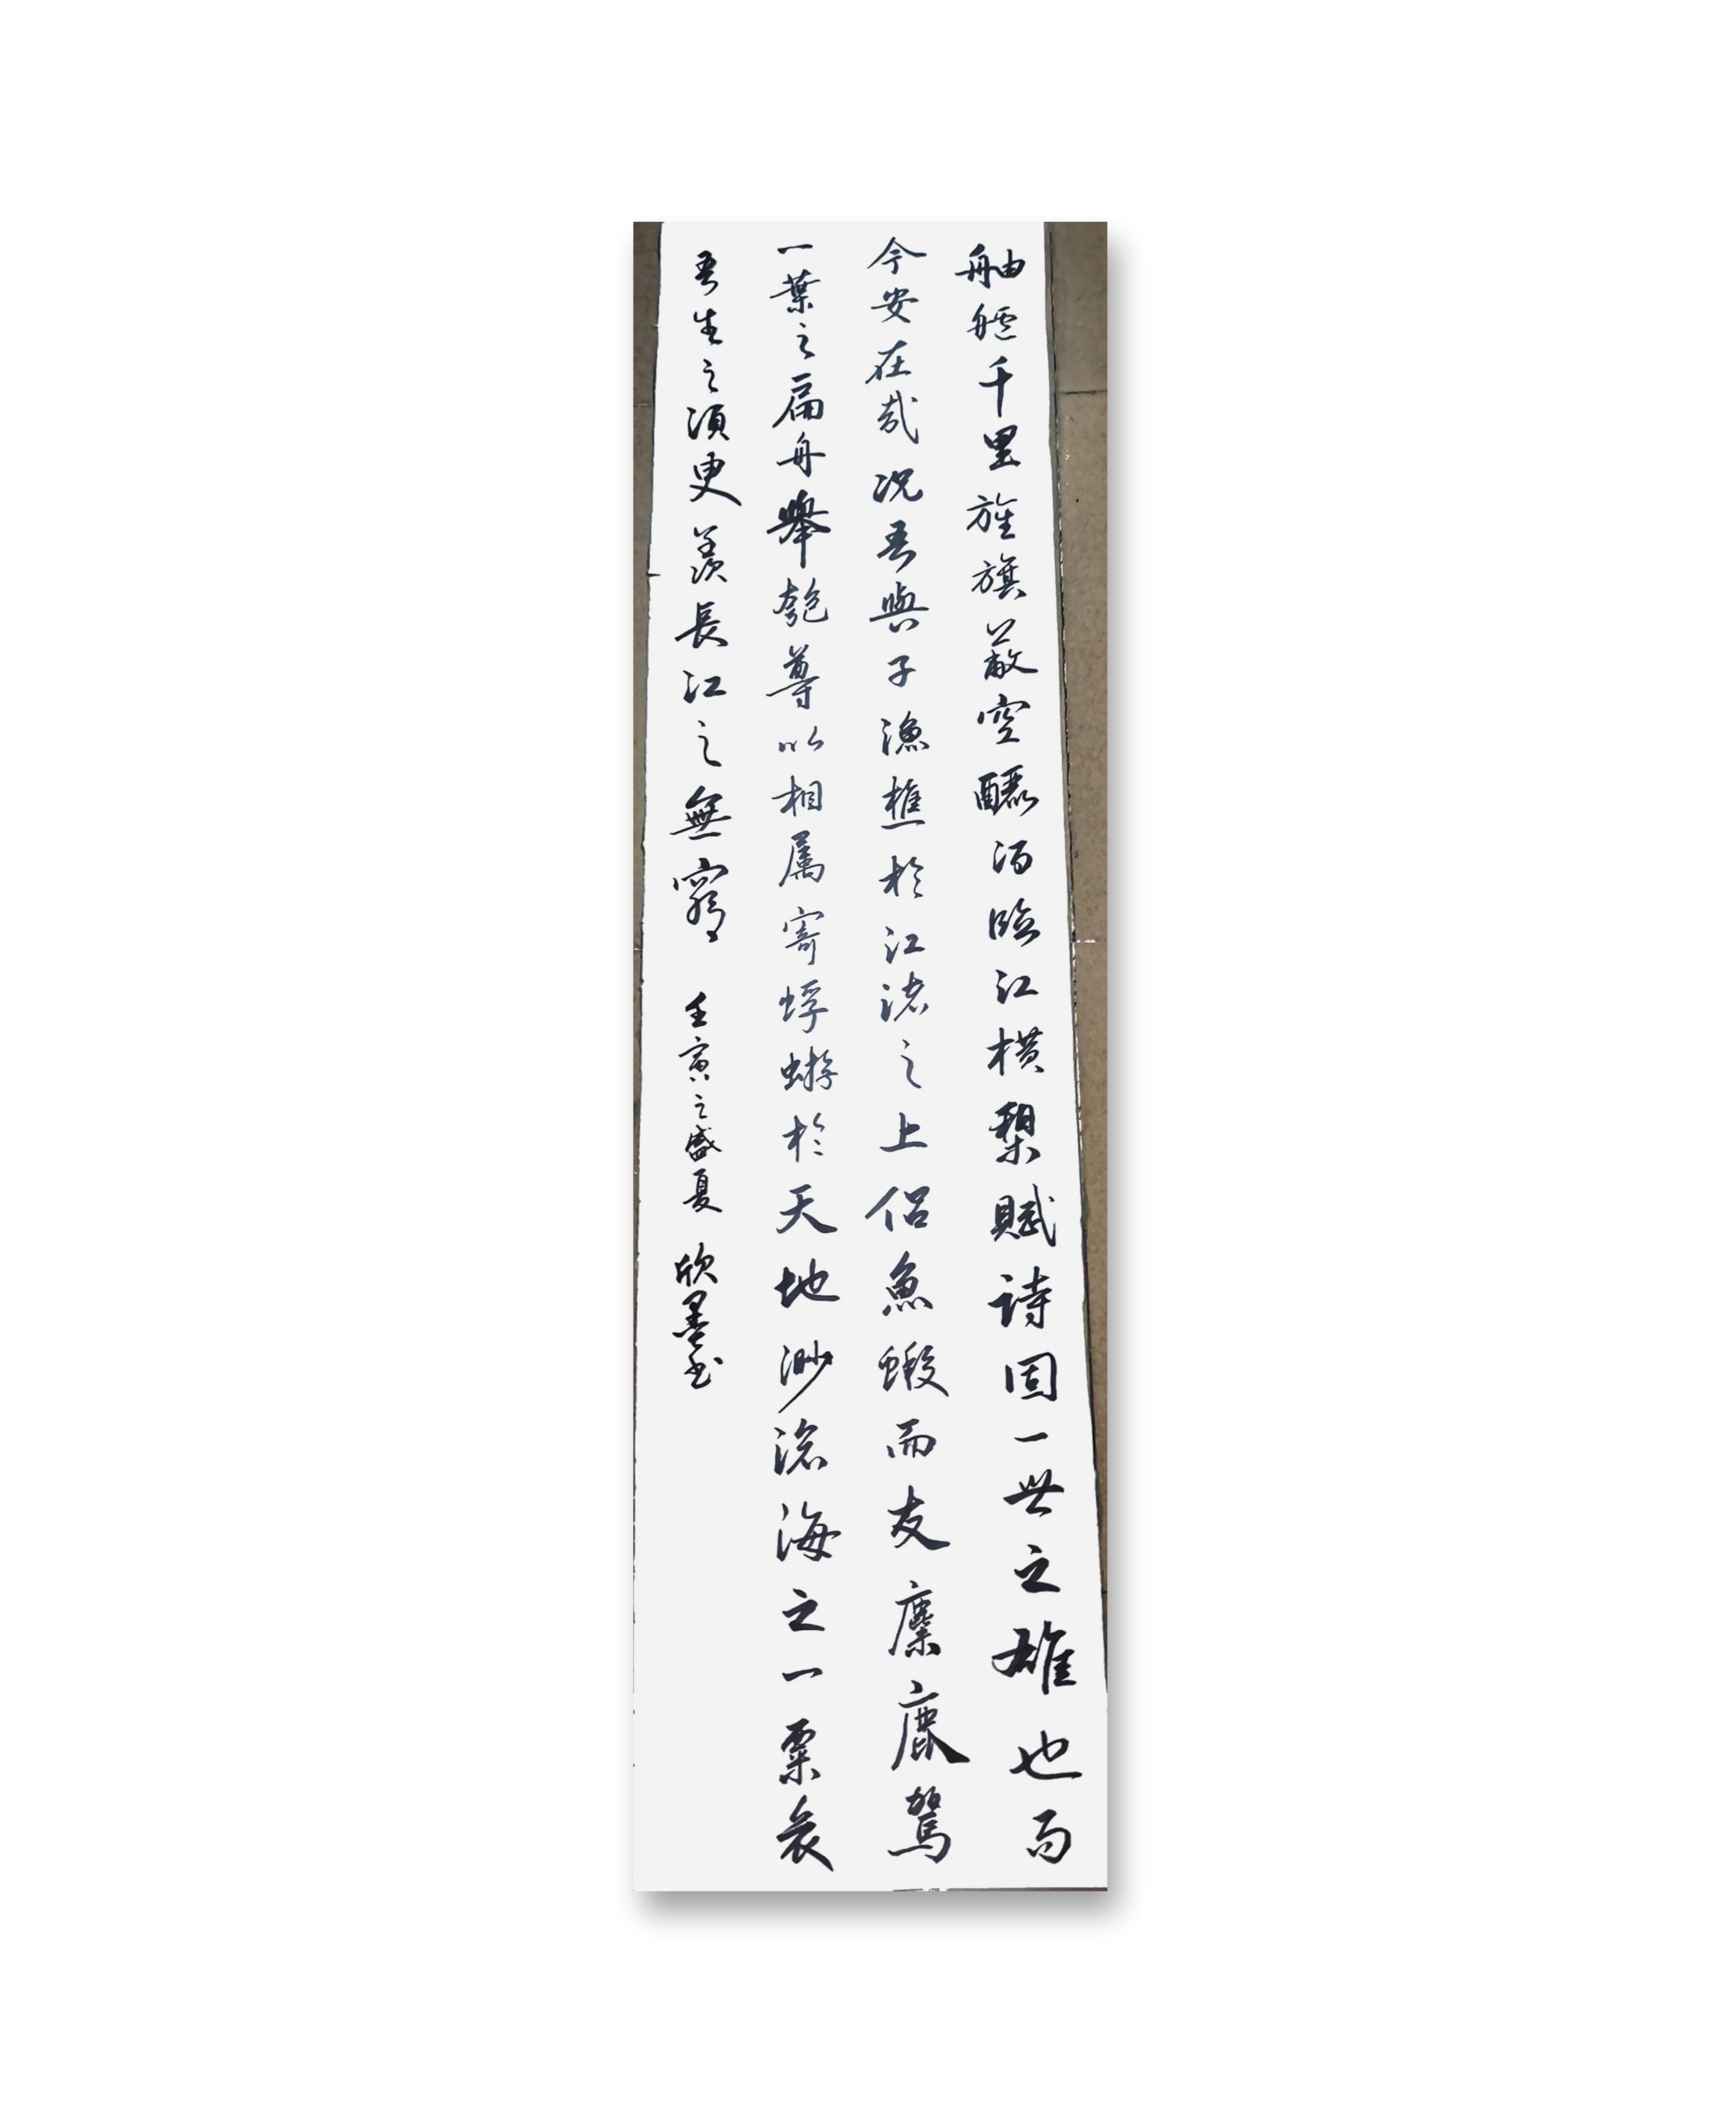 舳艫千里旌旗蔽空釃酒臨江橫槊賦詩固一世之雄也而
今安在哉況吾與子漁樵於江渚之上侶魚蝦而友麋鹿駕
一葉之扁舟舉匏尊以相屬寄蜉蝣於天地渺滄海之一粟哀
吾生之須臾羨長江之無窮 壬寅之盛夏 欣墨书